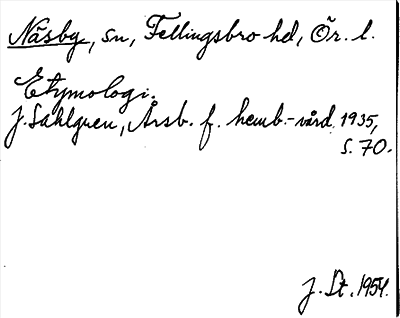 Näsby, sn, Fellingsbro hd, Ör. l.
Etymologi.
J. Sahlgren, Årsb. f. hemb.-vård, 1935,
s. 70.
J. St. 1954.